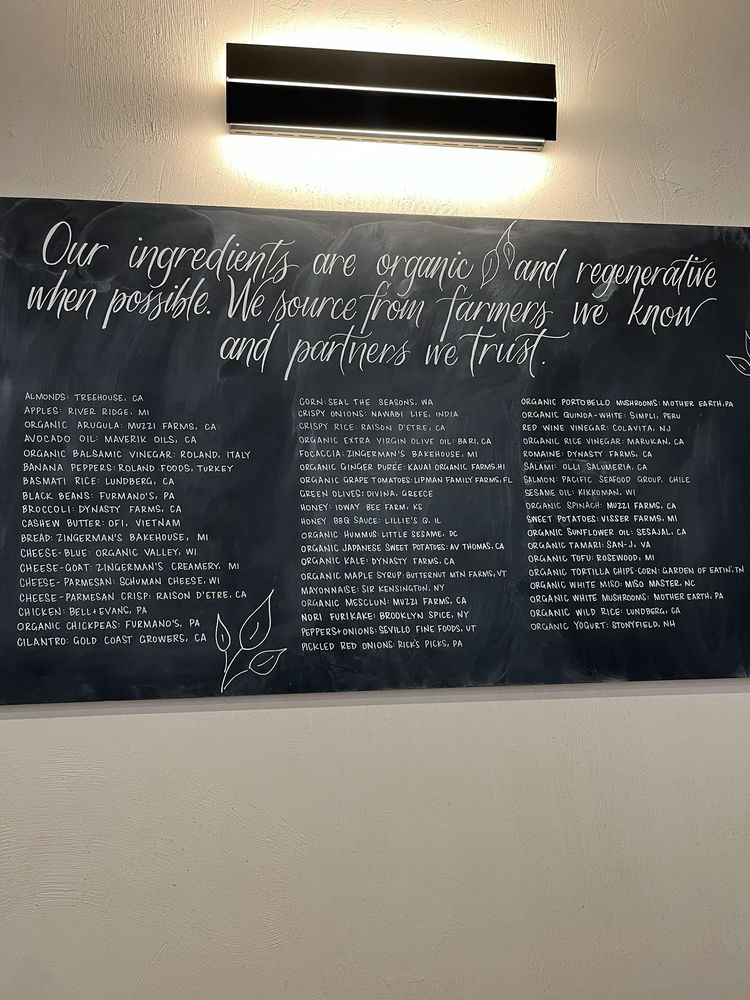 Our ingredients are organic and regenerative
when possible. We source from farmers we know
and partners we trust.
ALMONDS: TREEHOUSE, CA
APPLES: RIVER RIDGE, MI
ORGANIC ARUGULA: MUZZI FARMS, CA
AVOCADO OIL: MAVERIK OILS, CA
ORGANIC BALSAMIC VINEGAR: ROLAND, ITALY
BANANA PEPPERS: ROLAND FOODS, TURKEY
BASMATI RICE: LUNDBERG, CA
BLACK BEANS: FURMANO'S, PA
BROCCOLI: DYNASTY FARMS, CA
CASHEW BUTTER: OFI, VIETNAM
BREAD: ZINGERMAN'S BAKEHOUSE, MI
CHEESE-BLUE: ORGANIC VALLEY, WI
CHEESE-GOAT: ZINGERMAN'S CREAMERY, MI
CHEESE-PARMESAN: SCHUMAN CHEESE, WI
CHEESE-PARMESAN CRISP: RAISON D'ETRE, CA
CHICKEN: BELL+EVANS, PA
ORGANIC CHICKPEAS: FURMANO'S, PA
CILANTRO: GOLD COAST GROWERS, CA
CORN: SEAL THE SEASONS, WA
CRISPY ONIONS: NAWABI LIFE, INDIA
CRISPY RICE: RAISON D'ETRE, CA
ORGANIC EXTRA VIRGIN OLIVE OIL: BARI, CA
FOCACCIA: ZINGERMAN'S BAKEHOUSE, MI
ORGANIC GINGER PURÉE: KAUAI ORGANIC FARMS, HI
ORGANIC GRAPE TOMATOES: LIPMAN FAMILY FARMS, FL
GREEN OLIVES: DIVINA, GREECE
HONEY: IOWAY BEE FARM, KS
HONEY BBQ SAUCE: LILLIE'S Q, IL
ORGANIC HUMMUS: LITTLE SESAME, DC
ORGANIC JAPANESE SWEET POTATOES: AV THOMAS, CA
ORGANIC KALE: DYNASTY FARMS, CA
ORGANIC MAPLE SYRUP: BUTTERNUT MTN FARMS, VT
MAYONNAISE: SIR KENSINGTON, NY
ORGANIC MESCLUN: MUZZI FARMS, CA
NORI FURIKAKE: BROOKLYN SPICE, NY
PEPPERS+ONIONS: SEVILLO FINE FOODS, UT
PICKLED RED ONIONS: RICK'S PICKS, PA
ORGANIC PORTOBELLO MUSHROOMS: MOTHER EARTH, PA
ORGANIC QUINOA-WHITE: SIMPLI, PERU
RED WINE VINEGAR: COLAVITA, NJ
ORGANIC RICE VINEGAR: MARUKAN, CA
ROMAINE: DYNASTY FARMS, CA
SALAMI: OLLI SALUMERIA, CA
SALMON: PACIFIC SEAFOOD GROUP, CHILE
SESAME OIL: KIKKOMAN, WI
ORGANIC SPINACH: MUZZI FARMS, CA
SWEET POTATOES: VISSER FARMS, MI
ORGANIC SUNFLOWER OIL: SESAJAL, CA
ORGANIC TAMARI: SAN-J, VA
ORGANIC TOFU: ROSEWOOD, MI
ORGANIC TORTILLA CHIPS-CORN: GARDEN OF EATIN', TN
ORGANIC WHITE MISO: MISO MASTER, NC
ORGANIC WHITE MUSHROOMS: MOTHER EARTH, PA
ORGANIC WILD RICE: LUNDBERG, CA
ORGANIC YOGURT: STONYFIELD, NH